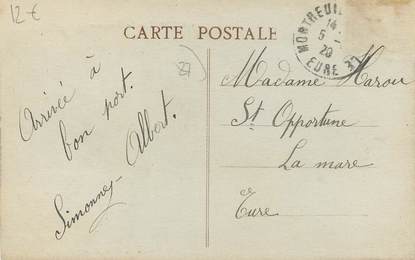 12 €
CARTE POSTALE
MONTREUIL
14
5 -
20
EURE
Arrivée à
bon port.
Simonne, Albert.
Madame Harou
St Opportune
La mare
Eure